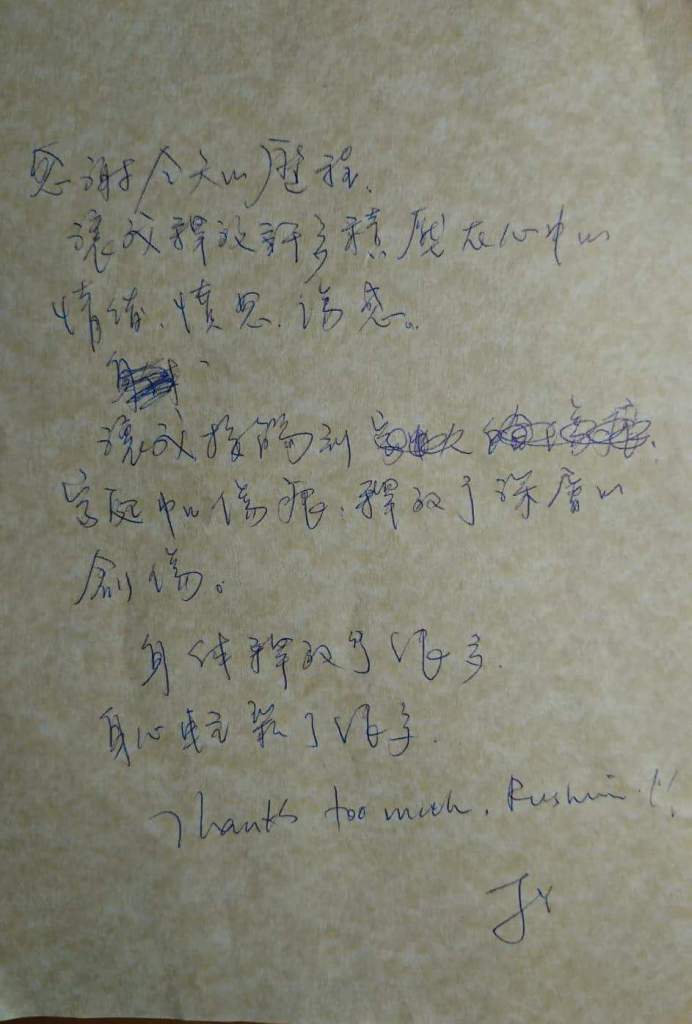 感謝今天的歷程.
讓我釋放許多積壓在心中的
情緒、憤怒、傷感。
讓我接觸到
家庭中的傷痕.釋放了深層的
創傷。
身体釋放了很多.
身心輕鬆了很多.
Thanks too much. Rushmi !!
JY